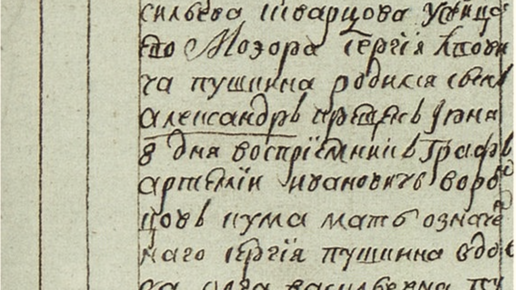 сильева Шварцова у евца
го Моэора Сергія Львови
ча Пушкина родился сынъ
Александръ крещенъ Іюня
8 дня восприемникъ Графъ
Артемии Ивановичъ Ворон
цовъ кума мать означен
наго Сергія Пушкина вдо
ва Ольга Васильевна Пу